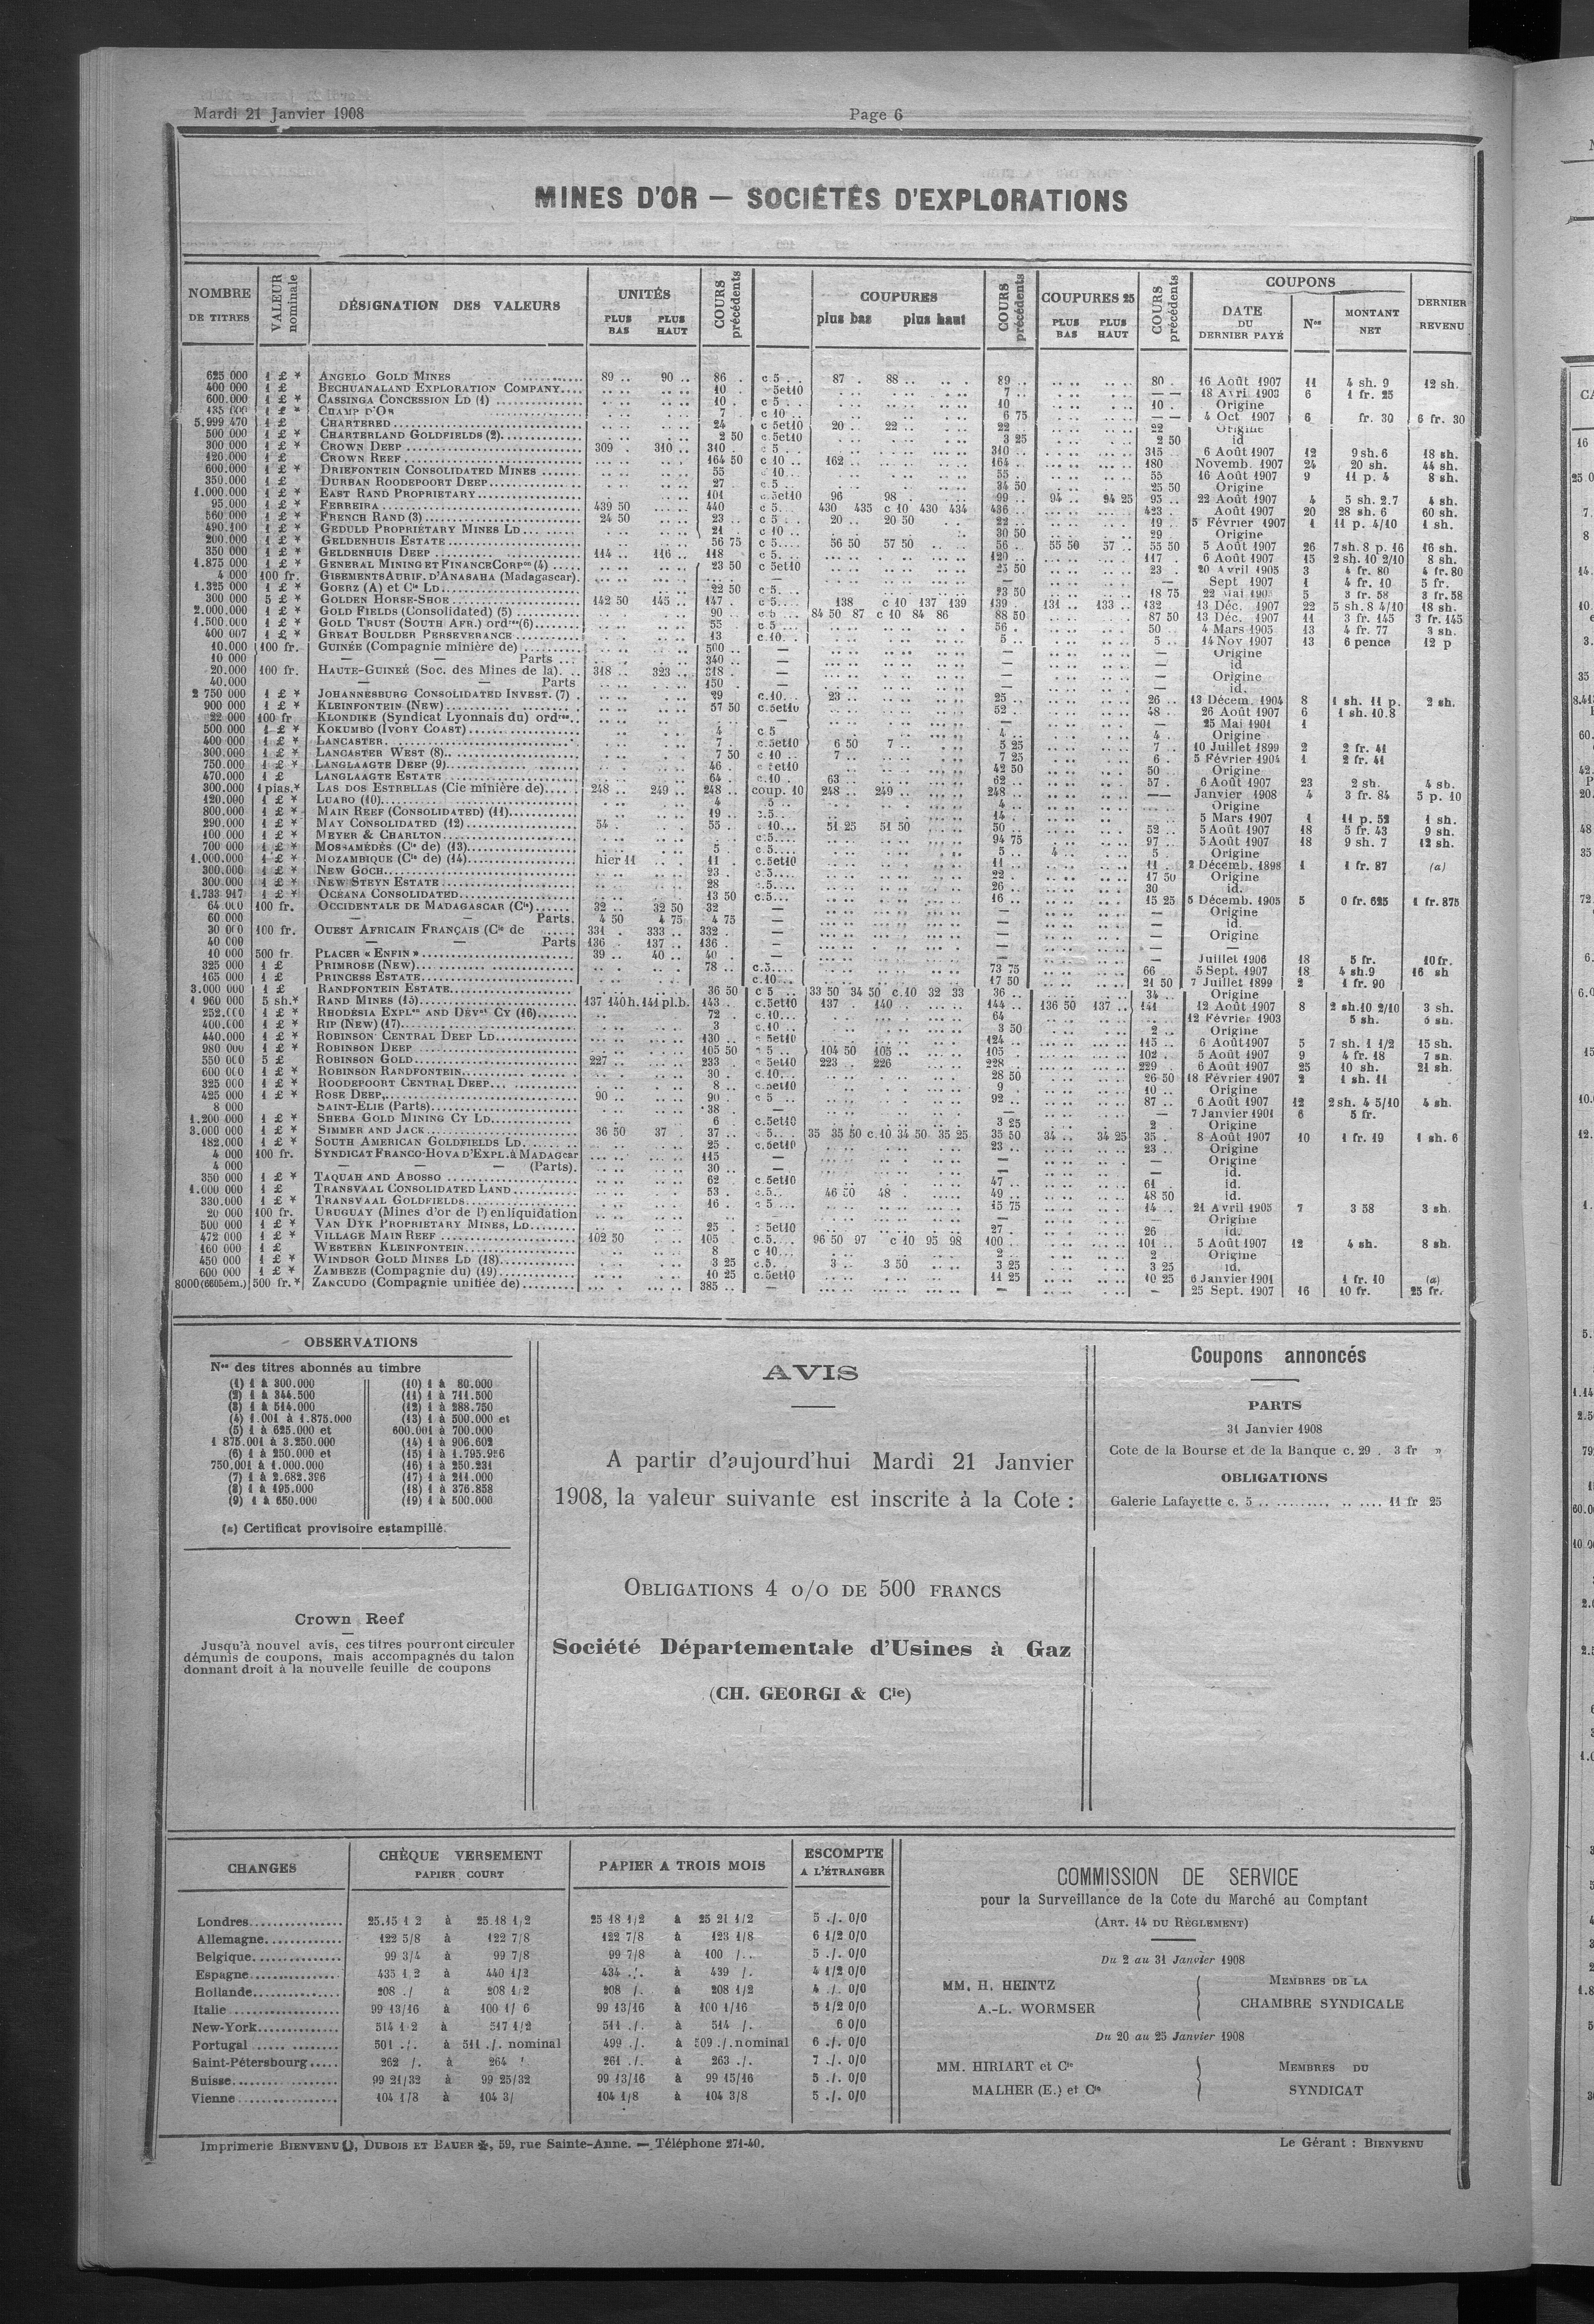 Mardi 21 Janvier 1908
Page 6
MINES D'OR — SOCIÉTÉS D'EXPLORATIONS
NOMBRE DE TITRES
VALEUR nominale
DÉSIGNATION DES VALEURS
UNITÉS
PLUS BAS PLUS HAUT
COURS précédents
COUPURES
plus bas plus haut
COURS précédents
COUPURES 25
PLUS BAS PLUS HAUT
COURS précédents
COUPONS
DATE DU DERNIER PAYÉ
Nos
MONTANT NET
DERNIER REVENU
625 000 1 £ * ANGELO GOLD MINES 89 .. 90 .. 86 . c 5 . . 87 . 88 .. 89 .. 80 . 16 Août 1907 11 4 sh. 9 12 sh.
400 000 1 £ BECHUANALAND EXPLORATION COMPANY 10 . 5et10 7 .. — — 18 Avril 1903 6 1 fr. 25
600.000 1 £ * CASSINGA CONCESSION LD (1) 10 . c 5 . . 10 10 . Origine
135 000 1 £ * CHAMP D'OR 7 . c 10 .. 6 75 — — 4 Oct 1907 6 fr. 30 6 fr. 30
5.999 470 1 £ CHARTERED 24 c 5et10 20 .. 22 .. 22 .. 22 Origine
500 000 1 £ * CHARTERLAND GOLDFIELDS (2) 2 50 c.5et10 3 25 2 50 id
300 000 1 £ * CROWN DEEP 309 . 310 .. 310 . c 5 . . 310 .. 315 6 Août 1907 12 9 sh. 6 18 sh.
120.000 1 £ CROWN REEF 164 50 c 10 .. 162 .. 164 .. 180 Novemb. 1907 24 20 sh. 44 sh.
600.000 1 £ * DRIEFONTEIN CONSOLIDATED MINES 55 c 10 55 .. 55 16 Août 1907 9 11 p. 4 8 sh.
350.000 1 £ DURBAN ROODEPOORT DEEP 27 c.5 .. 34 50 25 50 Origine
1.000.000 1 £ * EAST RAND PROPRIETARY 101 c.5et10 96 98 . 99 .. 94 .. 94 25 95 .. 22 Août 1907 4 5 sh. 2.7 4 sh.
95.000 1 £ * FERREIRA 439 50 440 c 5. . 430 435 c 10 430 434 436 .. 423 . Août 1907 20 28 sh. 6 60 sh.
560 000 1 £ * FRENCH RAND (3) 24 50 23 .. c 5 : . 20 .. 20 50 22 .. 19 . 5 Février 1907 1 11 p. 4/10 1 sh.
490.100 1 £ * GEDULD PROPRIETARY MINES LD 21 .. c 10 .. 30 50 29 . Origine
200.000 1 £ * GELDENHUIS ESTATE 56 75 c 5.... 56 50 57 50 56 .. 55 50 57 .. 55 50 5 Août 1907 26 7 sh. 8 p. 16 16 sh.
350 000 1 £ * GELDENHUIS DEEP 114 .. 116 .. 118 c 5. 120 .. 117 6 Août 1907 15 2 sh. 10 2/10 8 sh.
1.875 000 1 £ * GENERAL MINING ET FINANCE CORPon (4) 23 50 c 5et10 25 50 23 . 20 Avril 1905 3 4 fr. 80 4 fr. 80
4 000 100 fr. GISEMENTS AURIF. D'ANASAHA (Madagascar). — — — Sept 1907 1 4 fr. 10 5 fr.
1.325 000 1 £ * GOERZ (A) et Cie LD 22 50 c 5.... 23 50 18 75 22 Mai 190 5 3 fr. 58 3 fr. 58
300 000 5 £ * GOLDEN HORSE-SHOE 142 50 145 .. 147 . c 5.... 138 c 10 137 139 139 .. 131 .. 133 .. 132 13 Déc. 1907 22 5 sh. 8 4/10 18 sh.
2.000.000 1 £ * GOLD FIELDS (Consolidated) (5) 90 .. c 5 84 50 87 c 10 84 86 88 50 87 50 13 Déc. 1907 11 3 fr. 145 3 fr. 145
1.500.000 1 £ * GOLD TRUST (SOUTH AFR.) ordres(6) 55 . c 5 56 . 50 . 4 Mars 1905 13 4 fr. 77 3 sh.
400 007 1 £ * GREAT BOULDER PERSEVERANCE 13 c.10. . 5 .. 5 14 Nov 1907 13 6 pence 12 p
10.000 100 fr. GUINÉE (Compagnie minière de) 500 . — — — Origine
10 000 — — Parts 340 .. — — — id
20.000 100 fr. HAUTE-GUINÉE (Soc. des Mines de la) 318 .. 323 .. 318 . — — — Origine
40.000 — — Parts 150 . — — — id.
2 750 000 1 £ * JOHANNESBURG CONSOLIDATED INVEST. (7) 29 c.10... 23 .. 25 .. 26 .. 13 Décem. 1904 8 1 sh. 11 p. 2 sh.
900 000 1 £ * KLEINFONTEIN (NEW) 57 50 c.5et10 52 .. 48 . 26 Août 1907 6 1 sh. 10.8
22 000 100 fr KLONDIKE (Syndicat Lyonnais du) ordres — — — 25 Mai 1901 1
500 000 1 £ * KOKUMBO (IVORY COAST) 4 c 5 4 .. 4 . Origine
400 000 1 £ * LANCASTER 7 . c.5et10 6 50 7 .. 5 25 7 .. 10 Juillet 1899 2 2 fr. 41
300.000 1 £ * LANCASTER WEST (8) 7 50 c 10 .. 7 .. 7 25 6 . 5 Février 1904 1 2 fr. 41
750.000 1 £ * LANGLAAGTE DEEP (9) 46 . c 5et10 42 50 50 Origine
470.000 1 £ LANGLAAGTE ESTATE 64 . c.10 . 63 62 .. 57 . 6 Août 1907 23 2 sh. 4 sh.
300.000 1 pias.* LAS DOS ESTRELLAS (Cie minière de) 248 .. 249 .. 248 .. coup. 10 248 .. 249 .. 248 — Janvier 1908 4 3 fr. 84 5 p. 10
120.000 1 £ * LUABO (10) 4 5 .. 4 .. Origine
800.000 1 £ * MAIN REEF (CONSOLIDATED) (11) 19 .. c.5.. 14 . 5 Mars 1907 1 11 p. 52 1 sh.
290.000 1 £ * MAY CONSOLIDATED (12) 54 . 55 . c 10... 51 25 51 50 50 .. 52 .. 5 Août 1907 18 5 fr. 43 9 sh.
100 000 1 £ * MEYER & CHARLTON c.5.... 94 75 97 .. 5 Août 1907 18 9 sh. 7 12 sh.
700 000 1 £ * MOSSAMÉDÈS (Cie de) (13) 5 c 5.... 5 .. 4 .. 5 . Origine
1.000.000 1 £ * MOZAMBIQUE (Cie de) (14) hier 11 11 . c.5et10 11 .. 11 . 2 Décemb. 1898 1 1 fr. 87 (a)
300.000 1 £ * NEW GOCH 23 . c.5.... 22 .. 17 50 Origine
300.000 1 £ * NEW STEYN ESTATE 28 c.5.... 26 .. 30 id.
1.733 947 1 £ * OCEANA CONSOLIDATED 13 50 c.5... 16 .. 15 25 5 Décemb. 1905 5 0 fr. 625 1 fr. 875
64 000 100 fr. OCCIDENTALE DE MADAGASCAR (Cie) 32 .. 32 50 32 — — — Origine
60 000 — — Parts. 4 50 4 75 4 75 — — — id.
30 000 100 fr. OUEST AFRICAIN FRANÇAIS (Cie de 331 . 333 .. 332 . — — — Origine
40 000 — — Parts 136 . 137 .. 136 . — — —
10 000 500 fr. PLACER « ENFIN » 39 .. 40 .. 40 . — — — Juillet 1906 18 5 fr. 10 fr.
325 000 1 £ PRIMROSE (NEW) 78 .. c.5.... 73 75 66 5 Sept. 1907 18 4 sh.9 16 sh
165 000 1 £ PRINCESS ESTATE c.10... 17 50 21 50 7 Juillet 1899 2 1 fr. 90
3.000 000 1 £ RANDFONTEIN ESTATE 36 50 c 5 .. 33 50 34 50 c.10 32 33 36 .. 34 .. Origine
1 960 000 5 sh.* RAND MINES (15) 137 140 h. 141 pl.b. 143 . c.5et10 137 . 140 144 .. 136 50 137 .. 141 12 Août 1907 8 2 sh.10 2/10 3 sh.
252.000 1 £ * RHODESIA EXPLon AND DEVnt CY (16) 72 . c.10... 64 12 Février 1903 5 sh.
400.000 1 £ * RIP (NEW) (17) 3 c.10 . 3 50 2 .. Origine
440.000 1 £ * ROBINSON CENTRAL DEEP LD 130 .. c 5et10 124 .. 115 .. 6 Août 1907 5 7 sh. 1 1/2 15 sh.
980 000 1 £ * ROBINSON DEEP 105 50 c 5 .. 104 50 105 .. 105 102 . 5 Août 1907 9 4 fr. 18 7 sh.
550 000 5 £ ROBINSON GOLD 227 .. 233 . c 5et10 223 .. 226 228 .. 229 6 Août 1907 25 10 sh. 21 sh.
600 000 1 £ * ROBINSON RANDFONTEIN 30 . c.10.... 28 50 26 50 18 Février 1907 2 1 sh. 11
325 000 1 £ * ROODEPOORT CENTRAL DEEP 8 .. c.5et10 9 10 .. Origine
425 000 1 £ * ROSE DEEP 90 .. 90 . c 5 .. 92 .. 87 .. 6 Août 1907 12 2 sh. 4 5/10 4 sh.
8 000 SAINT-ELIE (Parts) 38 . — — — 7 Janvier 1901 6 5 fr.
1.200 000 1 £ * SHEBA GOLD MINING CY LD 6 . c.5et10 3 25 2 . Origine
3.000 000 1 £ * SIMMER AND JACK 36 50 37 . 37 .. c.5... 35 35 50 c.10 34 50 35 25 35 50 34 .. 34 25 35 . 8 Août 1907 10 1 fr. 19 1 sh. 6
182.000 1 £ * SOUTH AMERICAN GOLDFIELDS LD 25 . c.5et10 23 .. 23 .. Origine
4 000 100 fr. SYNDICAT FRANCO-HOVA D'EXPL. à MADAGcar 115 — — — Origine
4 000 — — — (Parts). 30 .. — — — id.
350 000 1 £ * TAQUAH AND ABOSSO 62 c.5et10 47 .. 61 . id.
1.000 000 1 £ TRANSVAAL CONSOLIDATED LAND 53 . c.5.. 46 50 48 . 49 .. 48 50 id.
330.000 1 £ * TRANSVAAL GOLDFIELDS 16 . c 5 ... 15 75 14 .. 21 Avril 1905 7 3 58 3 sh.
20 000 100 fr. URUGUAY (Mines d'or de l') en liquidation — — Origine
500 000 1 £ * VAN DYK PROPRIETARY MINES, LD 25 . 5et10 27 26 id.
472 000 1 £ * VILLAGE MAIN REEF 102 50 105 c.5. . 96 50 97 c 10 95 98 100 101 .. 5 Août 1907 12 4 sh. 8 sh.
160 000 1 £ WESTERN KLEINFONTEIN 8 c 10... 2 .. 2 Origine
450 000 1 £ * WINDSOR GOLD MINES LD (18) 3 25 c.5. . 3 .. 3 50 3 25 3 25 id.
600 000 1 £ * ZAMBÈZE (Compagnie du) (19) 10 25 c.5et10 11 25 10 25 6 Janvier 1901 1 fr. 10 (a)
8000 (6605ém.) 500 fr.* ZANCUDO (Compagnie unifiée de) 385 .. — — — 25 Sept. 1907 16 10 fr. 25 fr.
OBSERVATIONS
Nos des titres abonnés au timbre
(1) 1 à 300.000
(2) 1 à 344.500
(3) 1 à 514.000
(4) 1.001 à 1.875.000
(5) 1 à 625.000 et
1 875.001 à 3.250.000
(6) 1 à 250.000 et
750.001 à 1.000.000
(7) 1 à 2.682.396
(8) 1 à 195.000
(9) 1 à 650.000
(10) 1 à 80.000
(11) 1 à 711.500
(12) 1 à 288.750
(13) 1 à 500.000 et
600.001 à 700.000
(14) 1 à 906.602
(15) 1 à 1.795.956
(16) 1 à 250.231
(17) 1 à 211.000
(18) 1 à 376.858
(19) 1 à 500.000
(a) Certificat provisoire estampillé.
Crown Reef
Jusqu'à nouvel avis, ces titres pourront circuler
démunis de coupons, mais accompagnés du talon
donnant droit à la nouvelle feuille de coupons
AVIS
A partir d'aujourd'hui Mardi 21 Janvier
1908, la valeur suivante est inscrite à la Cote :
OBLIGATIONS 4 o/o DE 500 FRANCS
Société Départementale d'Usines à Gaz
(CH. GEORGI & Cie)
Coupons annoncés
PARTS
31 Janvier 1908
Cote de la Bourse et de la Banque c. 29 . 3 fr »
OBLIGATIONS
Galerie Lafayette c. 5 .. ......... .. .. .... 11 fr 25
CHANGES
CHÈQUE VERSEMENT PAPIER COURT
PAPIER A TROIS MOIS
ESCOMPTE A L'ÉTRANGER
Londres 25.15 1 2 à 25.18 1/2 25 18 1/2 à 25 21 1/2 5 ./. 0/0
Allemagne 122 5/8 à 122 7/8 122 7/8 à 123 1/8 6 1/2 0/0
Belgique 99 3/4 à 99 7/8 99 7/8 à 100 /.. 5 ./. 0/0
Espagne 435 1 2 à 440 1/2 434 ./. à 439 /. 4 1/2 0/0
Hollande 208 ./ à 208 1/2 208 /. à 208 1/2 4 ./. 0/0
Italie 99 13/16 à 100 1/ 6 99 13/16 à 100 1/16 5 1/2 0/0
New-York 514 1 2 à 517 1/2 511 ./. à 514 /. 6 0/0
Portugal 501 ./. à 511 ./. nominal 499 ./. à 509 ./. nominal 6 ./. 0/0
Saint-Pétersbourg 262 /. à 264 261 ./. à 263 ./. 7 ./. 0/0
Suisse 99 21/32 à 99 25/32 99 13/16 à 99 15/16 5 ./. 0/0
Vienne 104 1/8 à 104 3/ 104 1/8 à 104 3/8 5 ./. 0/0
COMMISSION DE SERVICE
pour la Surveillance de la Cote du Marché au Comptant
(ART. 14 DU RÈGLEMENT)
Du 2 au 31 Janvier 1908
MM. H. HEINTZ
A.-L. WORMSER
MEMBRES DE LA
CHAMBRE SYNDICALE
Du 20 au 25 Janvier 1908
MM. HIRIART et Cie
MALHER (E.) et Cie
MEMBRES DU
SYNDICAT
Imprimerie BIENVENU, DUBOIS ET BAUER, 59, rue Sainte-Anne. — Téléphone 271-40.
Le Gérant : BIENVENU